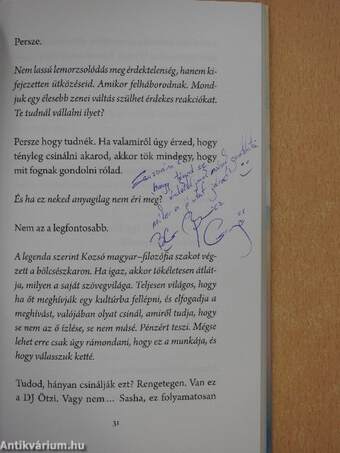 Persze.
Nem lassú lemorzsolódás meg érdektelenség, hanem ki-
fejezetten ütközéseid. Amikor felháborodnak. Mond-
juk egy élesebb zenei váltás szülhet érdekes reakciókat.
Te tudnál vállalni ilyet?
Persze hogy tudnék. Ha valamiről úgy érzed, hogy
tényleg csinálni akarod, akkor tök mindegy, hogy
mit fognak gondolni rólad.
És ha ez neked anyagilag nem éri meg?
Nem az a legfontosabb.
A legenda szerint Kozsó magyar–filozófia szakot vég-
zett a bölcsészkaron. Ha igaz, akkor tökéletesen átlát-
ja, milyen a saját szövegvilága. Teljesen világos, hogy
ha őt meghívják egy kultúrba fellépni, és elfogadja a
meghívást, valójában olyat csinál, amiről tudja, hogy
se nem az ő ízlése, se nem másé. Pénzért teszi. Mégse
lehet erre csak úgy rámondani, hogy ez a munkája, és
hogy válasszuk ketté.
Tudod, hányan csinálják ezt? Rengetegen. Van ez
a DJ Ötzi. Vagy nem… Sasha, ez folyamatosan
31
Antikvárium.hu